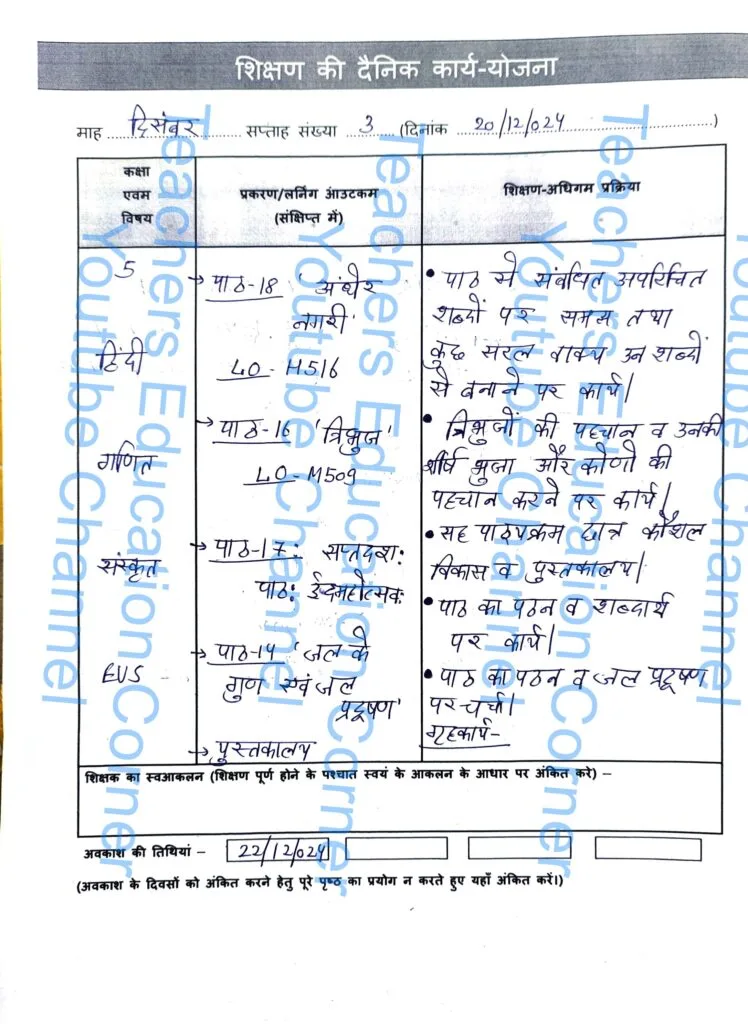 शिक्षण की दैनिक कार्य-योजना
माह दिसंबर सप्ताह संख्या 3 (दिनांक 20/12/024)
कक्षा
एवम
विषय
प्रकरण/लर्निंग आंउटकम
(संक्षिप्त में)
शिक्षण-अधिगम प्रक्रिया
5
हिंदी
→ पाठ-18 'अंधेर
नगरी'
LO - H516
• पाठ से संबंधित अपरिचित
शब्दों पर समझ तथा
कुछ सरल वाक्य उन शब्दों
से बनाने पर कार्य|
गणित
→ पाठ-16 'त्रिभुज'
LO - M509
• त्रिभुजों की पहचान व उनकी
शीर्ष भुजा और कोणो की
पहचान करने पर कार्य|
• सह पाठ्यक्रम छात्र कौशल
विकास व पुस्तकालय|
संस्कृत
→ पाठ-17: सप्तदशः
पाठः ईदमहोत्सवः
• पाठ का पठन व शब्दार्थ
पर कार्य|
EVS
→ पाठ-14 'जल के
गुण एवं जल
प्रदूषण'
• पाठ का पठन व जल प्रदूषण
पर चर्चा|
गृहकार्य-
→ पुस्तकालय
शिक्षक का स्वआकलन (शिक्षण पूर्ण होने के पश्चात स्वयं के आकलन के आधार पर अंकित करे) –
अवकाश की तिथियां – 22/12/024
(अवकाश के दिवसों को अंकित करने हेतु पूरे पृष्ठ का प्रयोग न करते हुए यहाँ अंकित करें।)
Teachers Education Corner
Youtube Channel
Teachers Education Corner
Youtube Channel
Teachers Education Corner
Youtube Channel